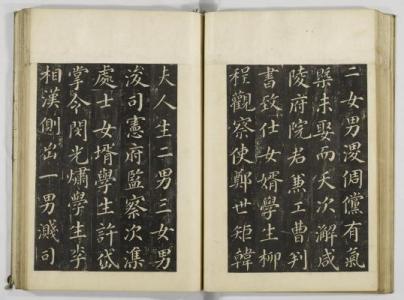 二女男倜儻有氣
槩未娶而夭次澥咸
陵府院君兼工曹判
書致仕女婿學生柳
程觀察使鄭世矩韓
夫人生二男三女男
浚司憲府監察次潗
處士女壻學生許岱
掌令閔光熽學生李
相漢側出一男濺司